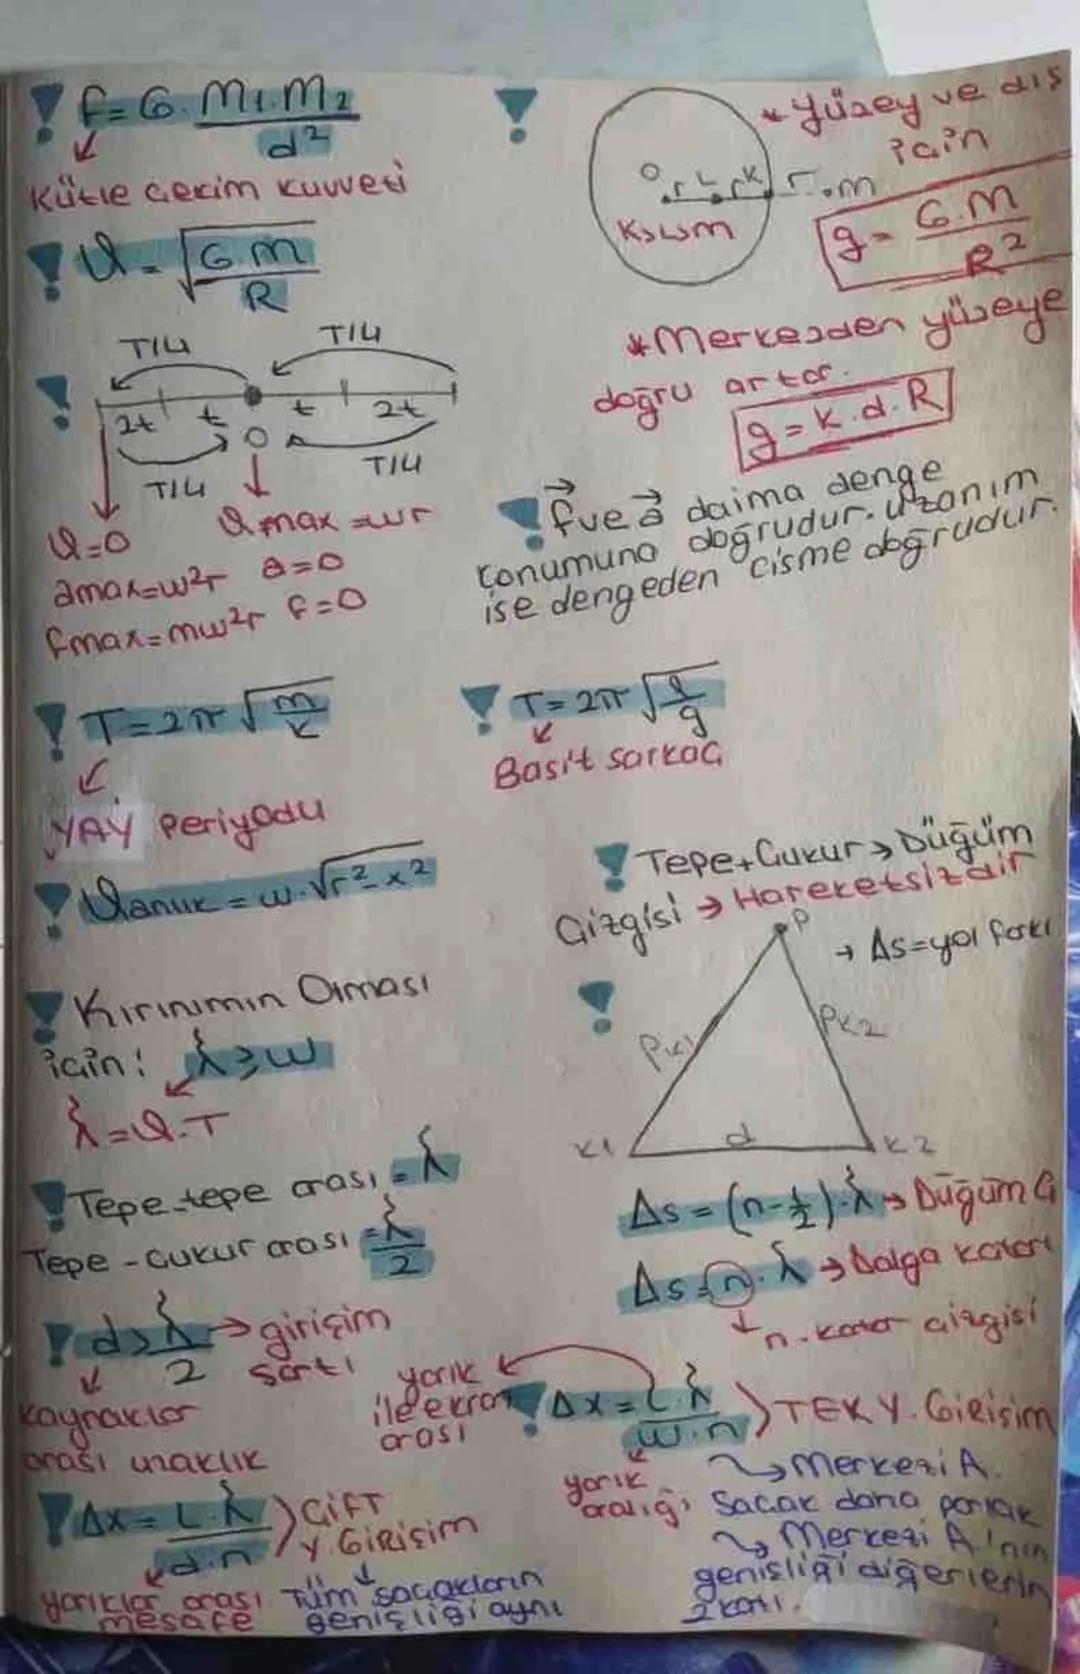 F=G. M1.M2
d²
Kütle Çekim Kuvveti
ϑ = √G.M
R
T/4 T/4
2t t t 2t
O
T/4 T/4
ϑ=0 ϑmax=wr
amax=w²r a=0
Fmax=mw²r F=0
T=2π √m
k
YAY Periyodu
ϑanlık = w.√r²-x²
Kırınımın Olması
için: λ≥w
λ=ϑ.T
Tepe-tepe arası = λ
Tepe-Çukur arası = λ
2
d>λ → girişim
2 şartı
kaynaklar
arası uzaklık
Δx= L.λ ÇİFT
d.n Y. GİRİŞİM
yarıklar arası Tüm saçakların
mesafe genişliği aynı
* Yüzey ve dış
için
O r L r K r .m
K,L,M
g= G.M
R²
*Merkezden yüzeye
doğru artar.
g=K.d.R
F ve a daima denge
konumuna doğrudur. Uzanım
ise dengeden cisme doğrudur.
T=2π √l
g
Basit sarkaç
Tepe+Çukur→Düğüm
Çizgisi → Hareketsizdir
P
→ Δs=yol farkı
PK1 PK2
K1 d K2
Δs=(n-1/2).λ→ Düğüm Ç
Δs=n.λ → Dalga katarı
n. katar çizgisi
yarık
ile ekran
arası
Δx= L.λ TEK Y. Girişim
w.n
yarık
aralığı
Merkezi A.
Saçak daha parlak
Merkezi A'nın
genişliği diğerlerin
2 katı.